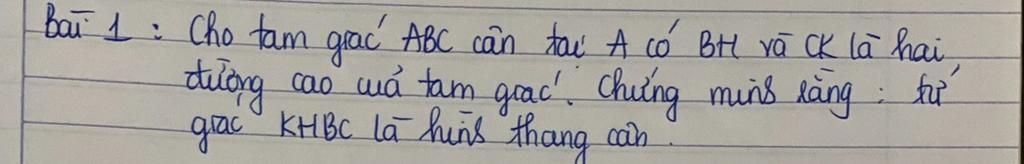 Bài 1 : Cho tam giác ABC cân tại A có BH và CK là hai
đường cao của tam giác. Chứng minh rằng : tứ
giác KHBC là hình thang cân.